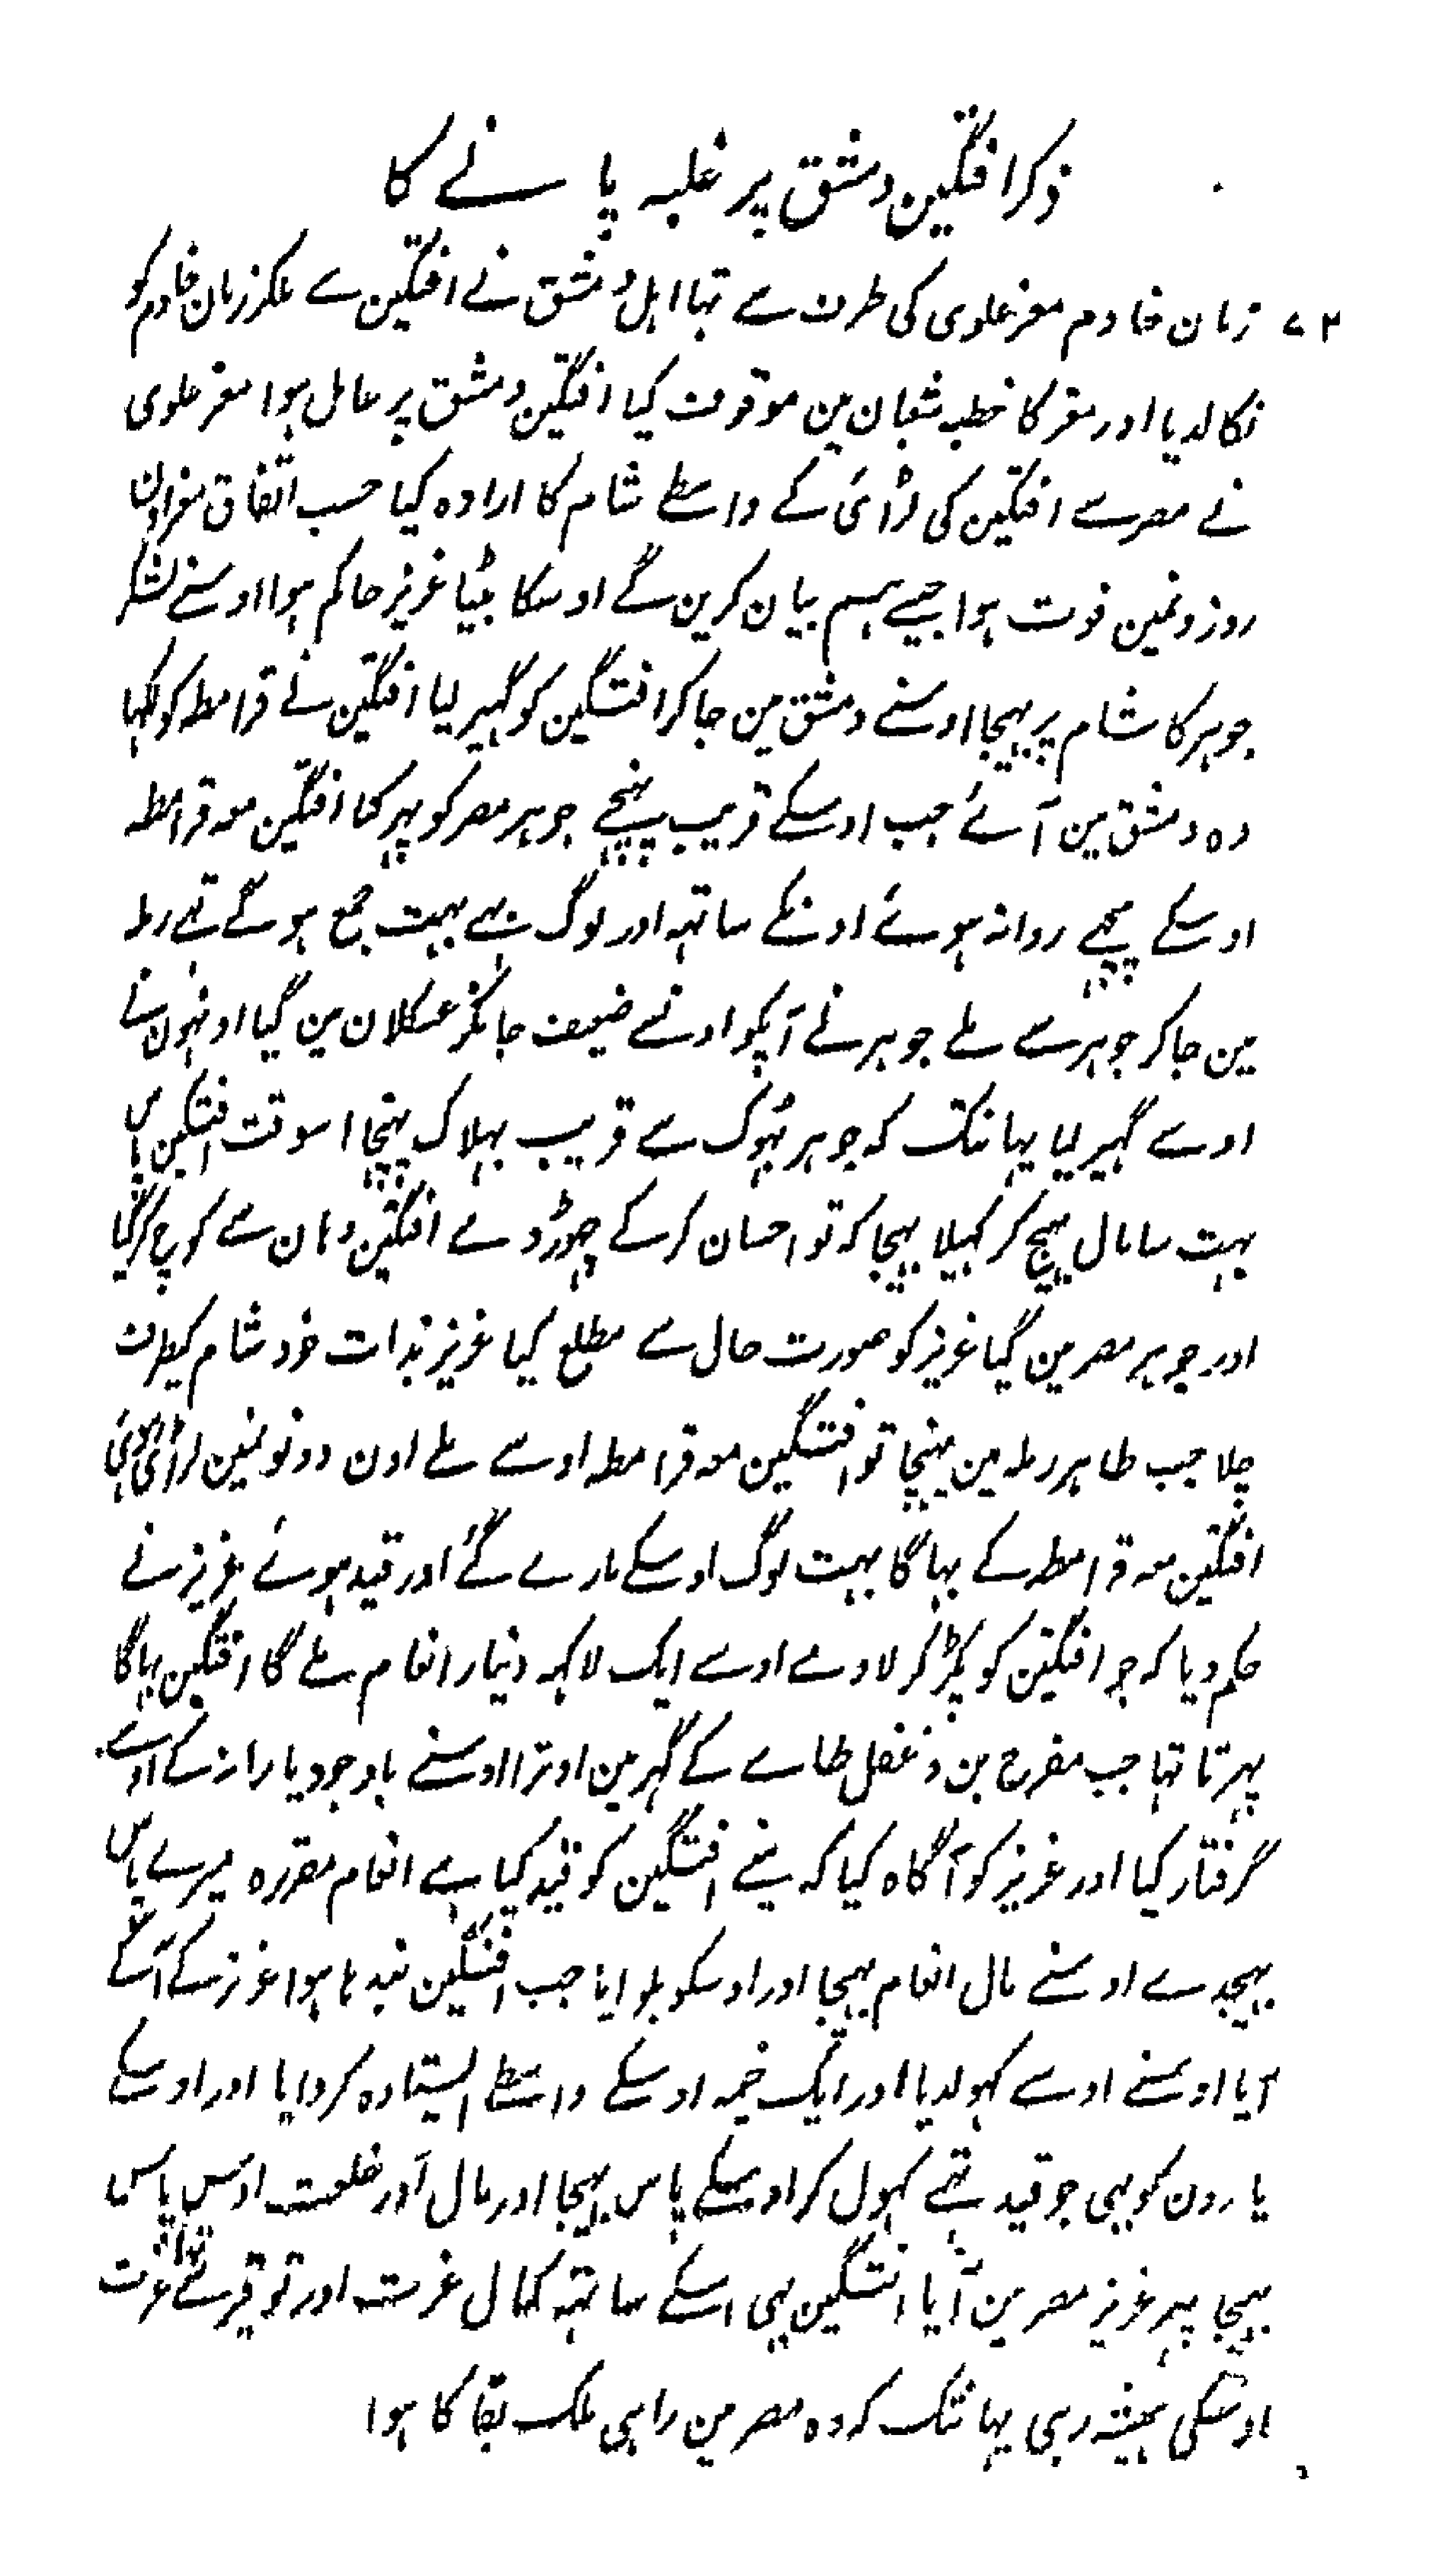 ذکر افتگین دمشق پر غلبہ پا نے کا
۷۲ زمان خادم معز علوی کی طرف سے تہا اہل دمشق نے افتگین سے ملکر زمان خادم کو
نکالدیا اور معز کا خطبہ شعبان مین موقوف کیا افتگین دمشق پر عامل ہوا معز علوی
نے مصر سے افتگین کی لڑائی کے واسطے شام کا ارادہ کیا حسب اتفاق معز اون
روزونمین فوت ہوا جیسے ہم بیان کرین گے اوسکا بیٹا عزیز حاکم ہوا اوسنے لشکر
جوہر کا شام پر بہیجا اوسنے دمشق مین جا کر افتگین کو گہیر لیا افتگین نے قرامطہ کو لکہا
وہ دمشق مین آئے جب اوسکے قریب پہنچے جوہر مصر کو پہر گیا افتگین معہ قرامطہ
اوسکے پیچہے روانہ ہوئے اونکے ساتہہ اور لوگ بہی بہت جمع ہو گئے تہے رملہ
مین جا کر جوہر سے ملے جوہر نے آپکو اونسے ضعیف جانکر عسکلان مین گیا اونہون نے
اوسے گہیر لیا یہانتک کہ جوہر بہوک سے قریب بہلاک پہنچا اسوقت افتگین پاس
بہت سا مال بہیج کر کہیلا بہیجا کہ تو احسان کر کے چہوڑ دے افتگین وہان سے کوچ کر گیا
اور جوہر مصر مین گیا عزیز کو صورت حال سے مطلع کیا عزیز بذات خود شام کیطرف
چلا جب ظاہر رملہ مین پہنچا تو افتگین معہ قرامطہ اوسے ملے اون دونونمین لڑائی ہوئی
افتگین معہ قرامطہ کے بہاگا بہت لوگ اوسکے مارے گئے اور قید ہوئے عزیز نے
حکم دیا کہ جو افتگین کو پکڑ کر لاوے اوسے ایک لاکہہ دینار انعام ملے گا افتگین بہاگا
پہرتا تہا جب مفرح بن دغفل طاے کے گہر مین اوترا اوسنے باوجود یارانہ کے اوسے
گرفتار کیا اور عزیز کو آگاہ کیا کہ مینے افتگین کو قید کیا ہے انعام مقررہ میرے پاس
بہیجدے اوسنے مال انعام بہیجا اور اوسکو بلوایا جب افتگین بندہا ہوا عزیز کے آگے
آیا اوسنے اوسے کہولدیا اور ایک خیمہ اوسکے واسطے ایستادہ کروایا اور اوسکے
یارون کو بہی جو قید تہے کہول کر اوسکے پاس بہیجا اور مال اور خلعت اوس پاس
بہیجا پہر عزیز مصر مین آیا افتگین بہی اسکے ساتہہ کمال عزت اور توقیر سے عزت
اوسکی ہمیشہ رہی یہانتک کہ وہ مصر مین راہی ملک بقا کا ہوا